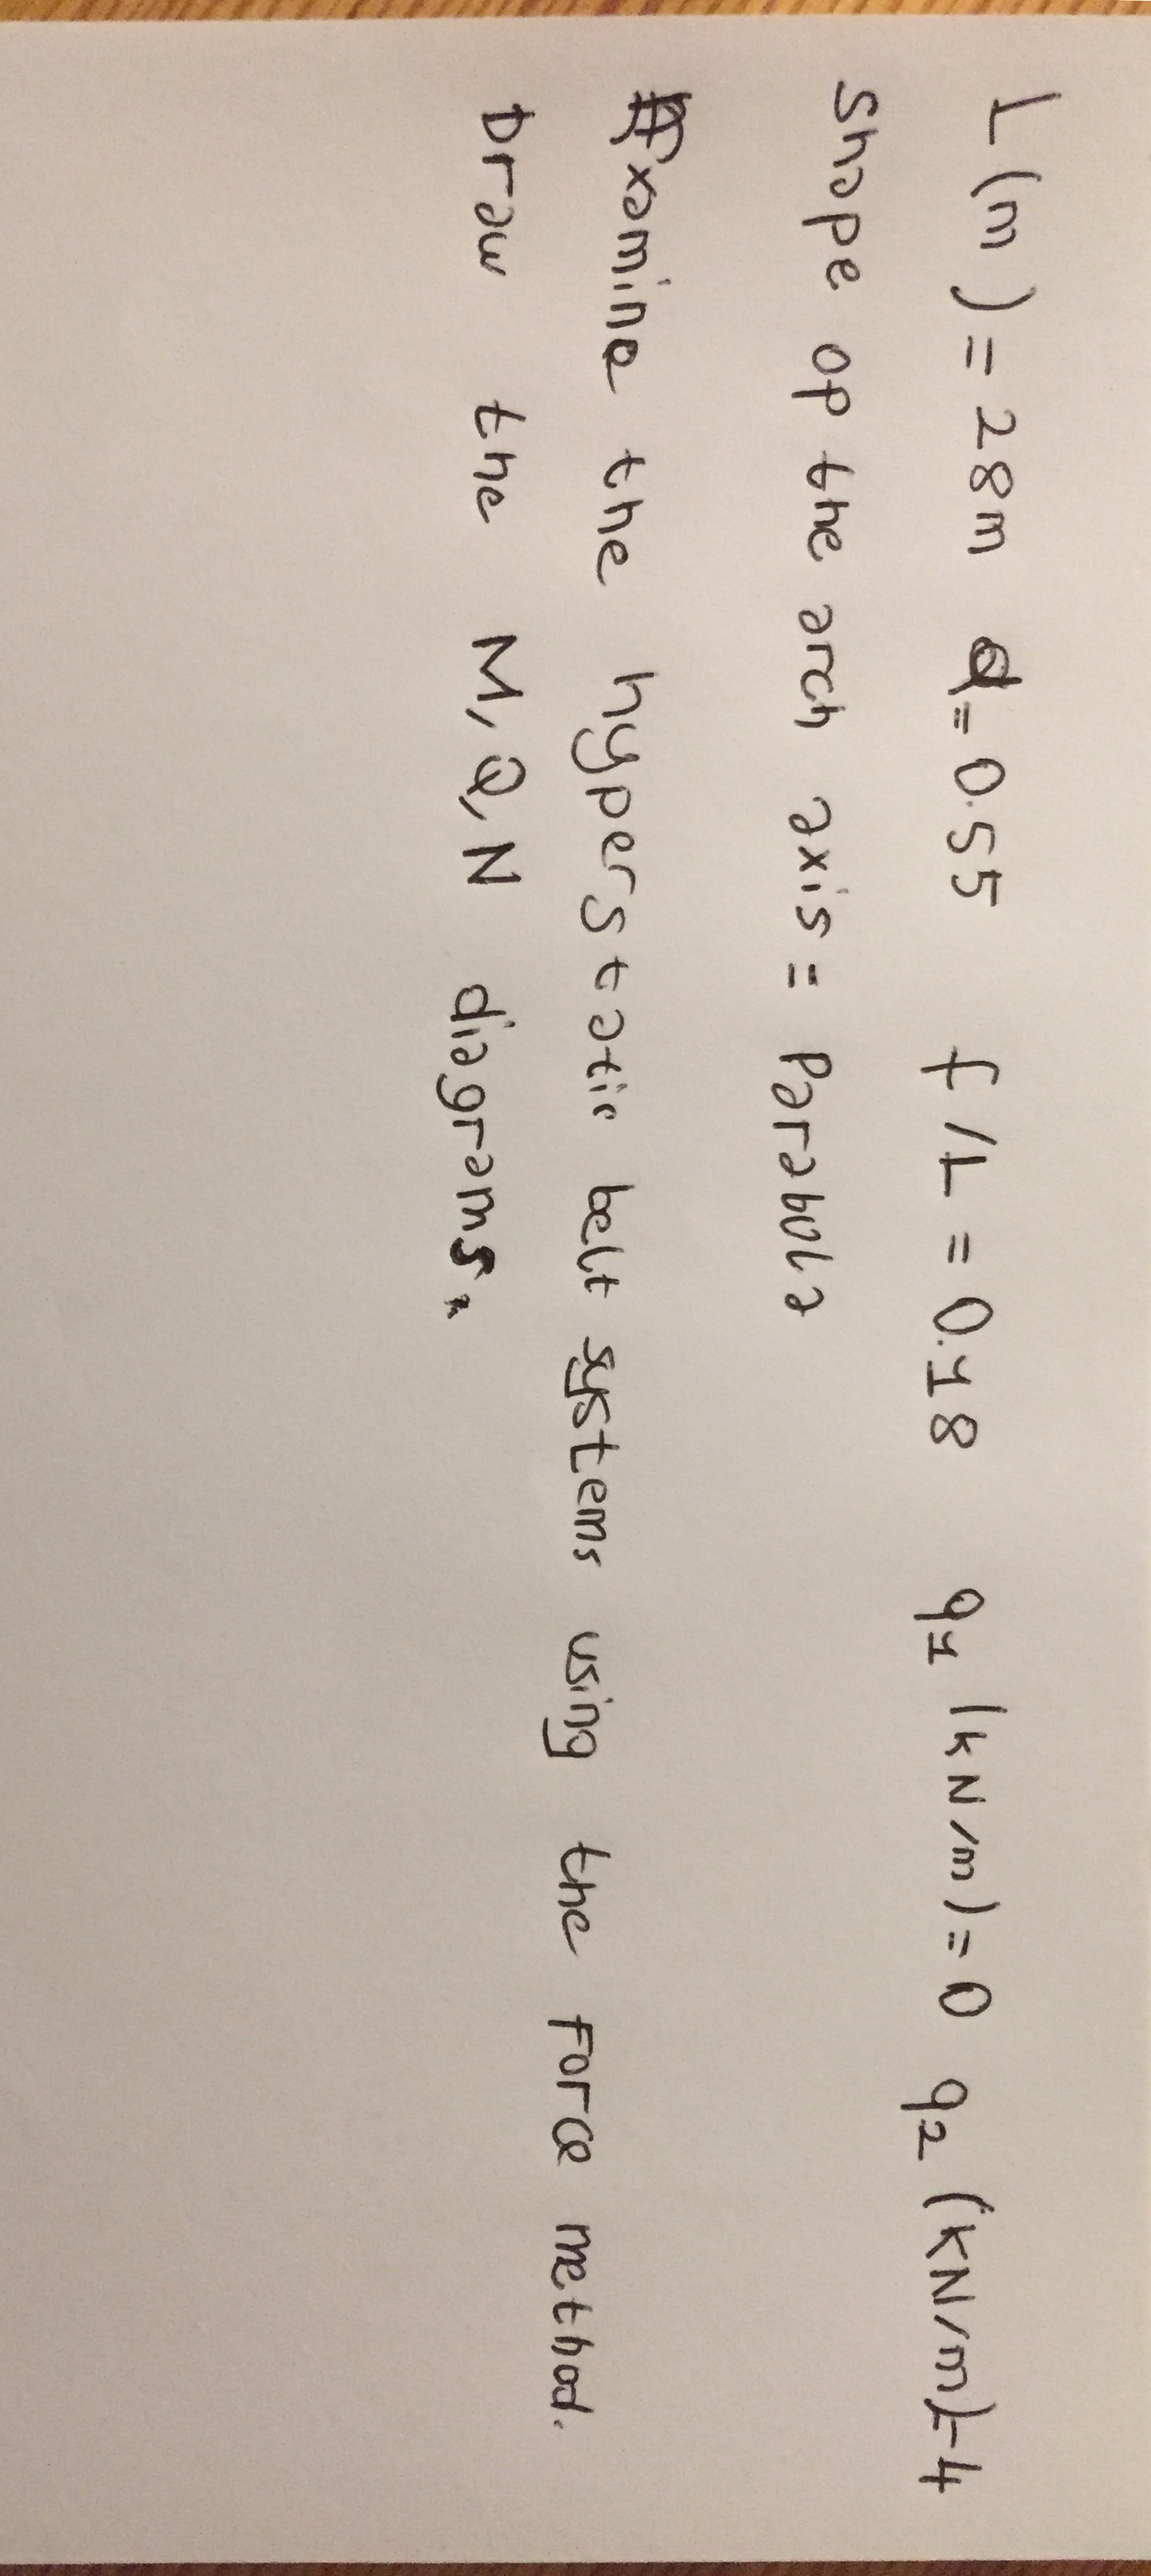 L (m) = 28m α = 0.55 f/L = 0.18 q1 (kN/m) = 0 q2 (kN/m) = 4
Shape op the arch axis = Parabola
Examine the hyperstatic belt systems using the Force method.
Draw the M, Q, N diagrams.